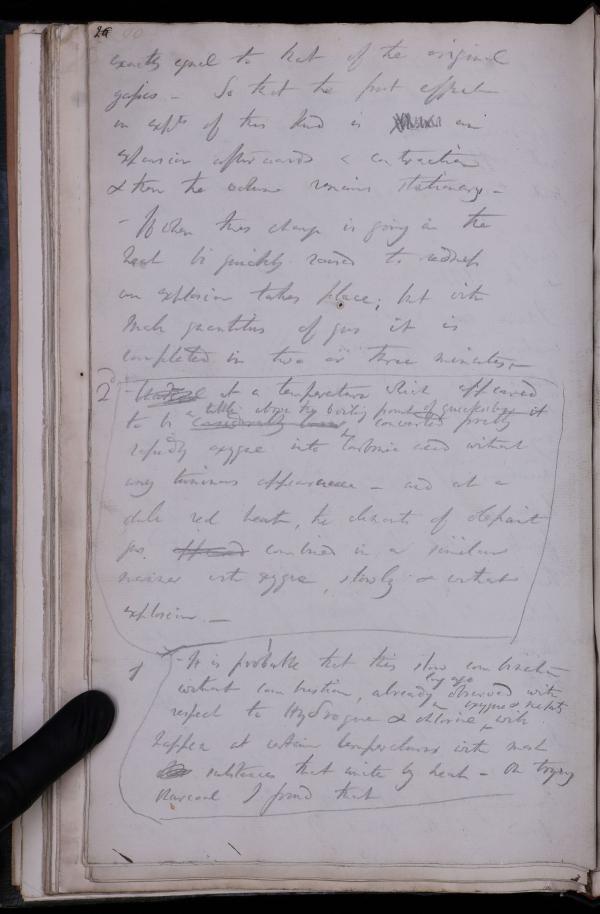 26
exactly equal to that of the original
gases - So that the first effect
in expts of this kind is an
expansion afterwards a contraction
& then the volume remains stationary. -
- When this change is going on the
heat be quickly raised to redness
an explosion takes place; but with
small quantities of gas it is
completed in two or three minutes, -
2 - at a temperature which appeared
to be a little above the boiling point of quicksilver it
converted pretty
rapidly oxygene into carbonic acid without
any luminous appearance - and at a
dull red heat, the elements of olefiant
gas. combined in a similar
manner with oxygene, slowly & without
explosion. -
1 - It is probable that this slow combination
without combustion, already long ago observed with
respect to Hydrogene & oxygene & metals
chlorine, will
happen at certain temperatures with most
substances that unite by heat - On trying
charcoal I found that